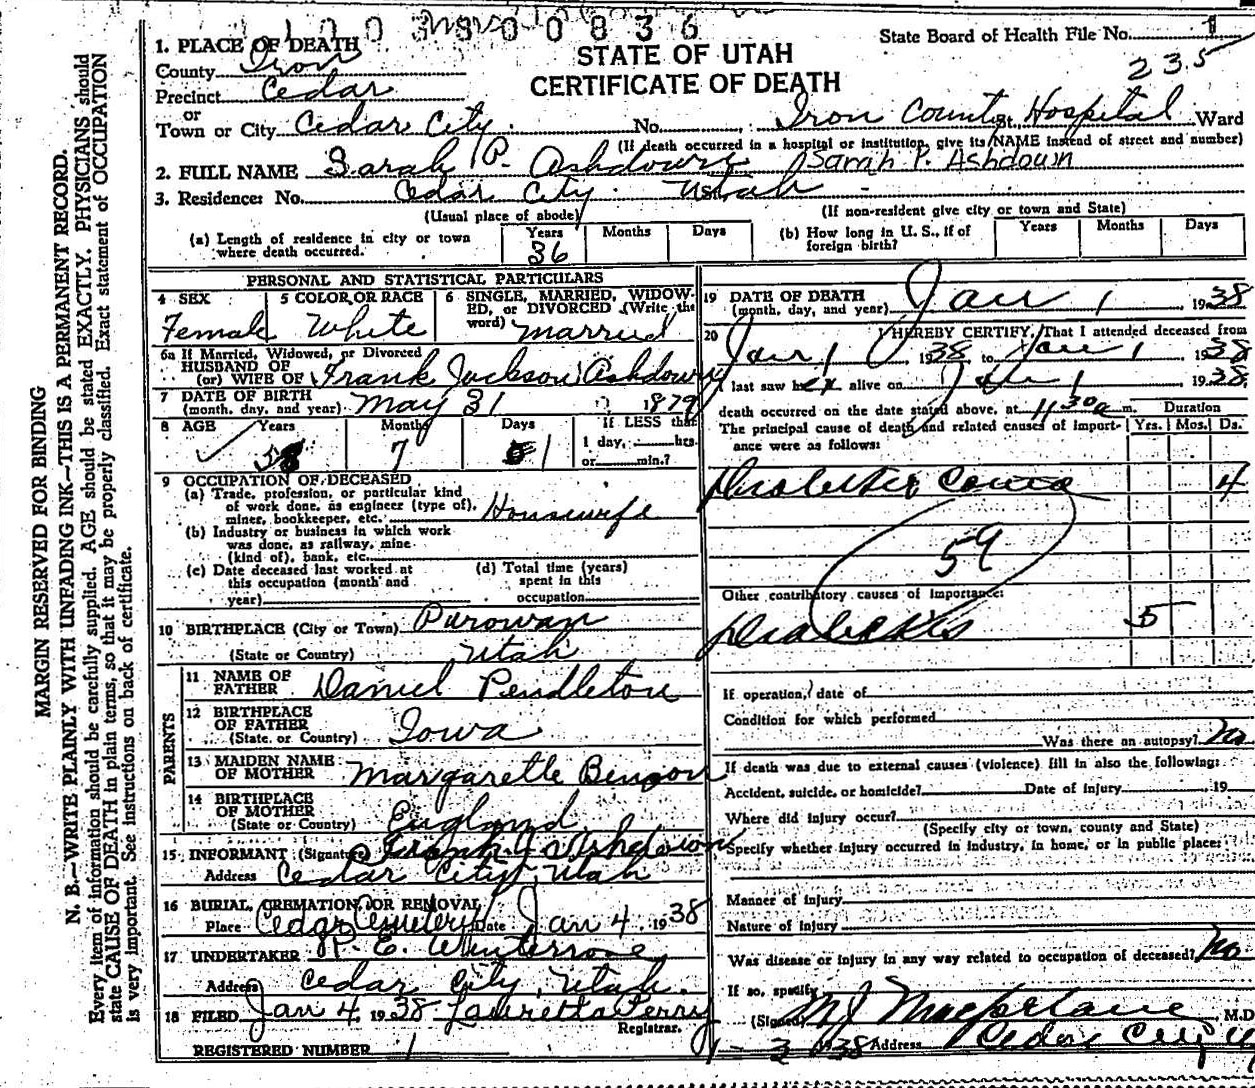 00300836
State Board of Health File No. 1
235
STATE OF UTAH
CERTIFICATE OF DEATH
1. PLACE OF DEATH
County Iron
Precinct Cedar
or
Town or City Cedar City. No. Iron County St. Hospital Ward
(If death occurred in a hospital or institution, give its NAME instead of street and number)
2. FULL NAME Sarah P. Ashdown Sarah P. Ashdown
3. Residence: No. Cedar City. Utah
(Usual place of abode) (If non-resident give city or town and State)
(a) Length of residence in city or town where death occurred. Years 36 Months Days (b) How long in U. S., if of foreign birth? Years Months Days
PERSONAL AND STATISTICAL PARTICULARS
4 SEX Female
5 COLOR OR RACE White
6 SINGLE, MARRIED, WIDOWED, or DIVORCED (Write the word) Married
6a If Married, Widowed, or Divorced
HUSBAND OF
(or) WIFE OF Frank Jackson Ashdown
7 DATE OF BIRTH
(month, day, and year) May 31 1879
8 AGE Years 58 Months 7 Days 1 If LESS than
1 day, hrs.
or min.?
9 OCCUPATION OF DECEASED
(a) Trade, profession, or particular kind
of work done, as engineer (type of),
miner, bookkeeper, etc. Housewife
(b) Industry or business in which work
was done, as railway, mine
(kind of), bank, etc.
(c) Date deceased last worked at
this occupation (month and
year)
(d) Total time (years)
spent in this
occupation
10 BIRTHPLACE (City or Town) Parowan
(State or Country) Utah
PARENTS
11 NAME OF
FATHER Daniel Pendleton
12 BIRTHPLACE
OF FATHER
(State or Country) Iowa
13 MAIDEN NAME
OF MOTHER Margarette Benson
14 BIRTHPLACE
OF MOTHER
(State or Country) England
15 INFORMANT (Signature) Frank J Ashdown
Address Cedar City, Utah
16 BURIAL, CREMATION, OR REMOVAL
Place Cedar Cemetery Date Jan 4 1938
17 UNDERTAKER
Address Cedar City, Utah.
18 FILED Jan 4 1938 Lauretta Perry
Registrar.
REGISTERED NUMBER 1
19 DATE OF DEATH
(month, day, and year) Jan 1 1938
20 I HEREBY CERTIFY, That I attended deceased from
Jan 1 1938 to Jan 1 1938
I last saw her alive on Jan 1 1938.
death occurred on the date stated above, at 11 30 a m. Duration
The principal cause of death and related causes of importance were as follows: Yrs. Mos. Ds.
Diabetic Coma 4
59
Other contributory causes of importance:
Diabetis 5
If operation, date of
Condition for which performed
Was there an autopsy? No
If death was due to external causes (violence) fill in also the following:
Accident, suicide, or homicide? Date of injury 19
Where did injury occur?
(Specify city or town, county and State)
Specify whether injury occurred in industry, in home, or in public place:
Manner of injury
Nature of injury
Was disease or injury in any way related to occupation of deceased? No.
If so, specify
(Signed) M J Macfarlane, M.D.
1-3 1938 Address Cedar City U
MARGIN RESERVED FOR BINDING
N. B.—WRITE PLAINLY WITH UNFADING INK—THIS IS A PERMANENT RECORD.
Every item of information should be carefully supplied. AGE should be stated EXACTLY. PHYSICIANS should
state CAUSE OF DEATH in plain terms, so that it may be properly classified. Exact statement of OCCUPATION
is very important. See instructions on back of certificate.